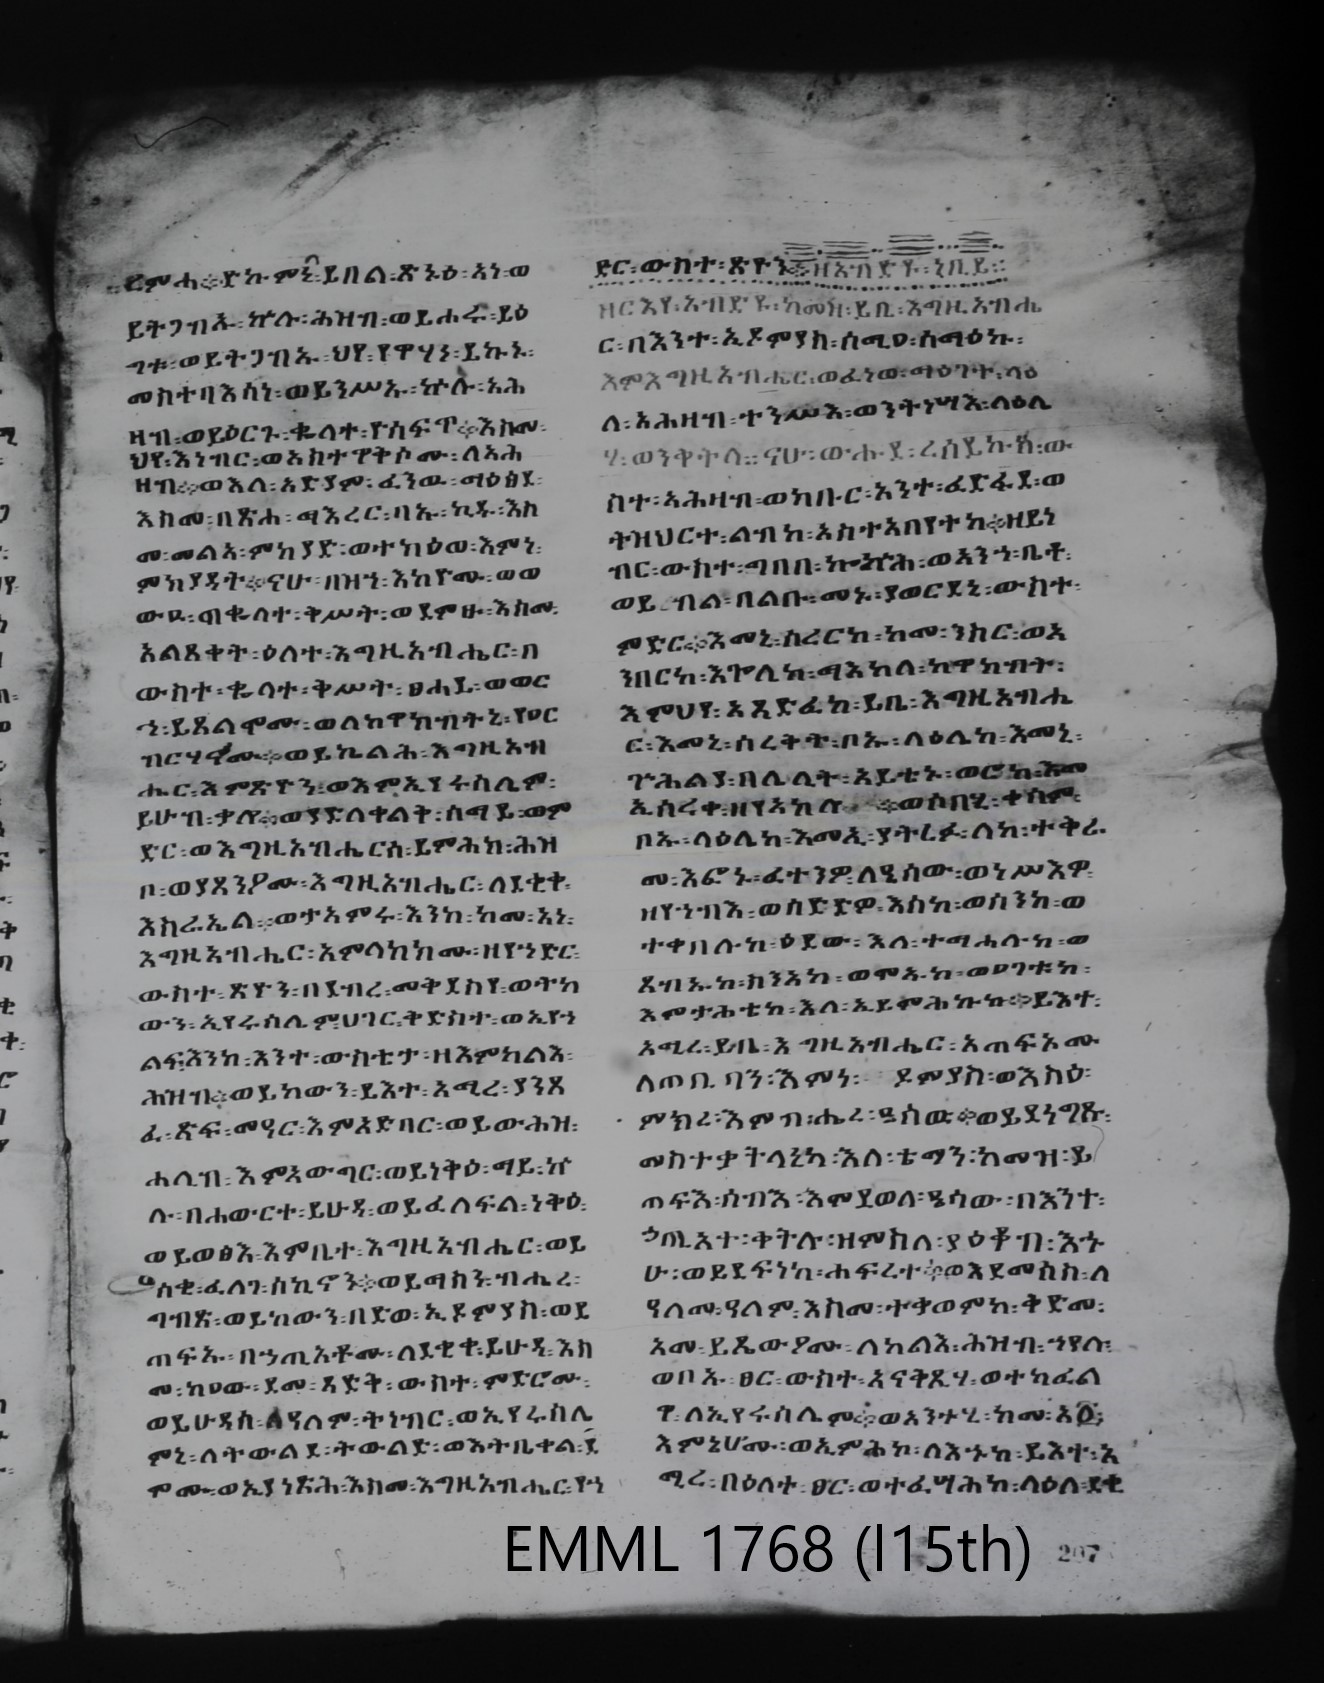 ይትጋብኡ፡ ኵሉ፡ ሕዝብ፡ ወይሐሩ፡ ይዕ
ግቱ፡ ወይትጋብኡ፡ ህየ፡ የዋሃን፡ ይኩኑ፡
መስተባእሳነ፡ ወይንሥኡ፡ ኵሉ፡ አሕ
ዛብ፡ ወይዕርጉ፡ ቈላተ፡ ዮሳፍጥ፡ እስመ፡
ህየ፡ እነብር፡ ወእስተዋቅሶሙ፡ ለአሕ
ዛብ፡ ወእለ፡ አድያም፡ ፈንዉ፡ ማዕፀደ፡
እስመ፡ በጽሐ፡ ማእረር፡ ባኡ፡ ኪዱ፡ እስ
መ፡ መልአ፡ ምክያድ፡ ወተክዕወ፡ እምነ፡
ምክያዳት፡ ናሁ፡ በዝኀ፡ እከዮሙ፡ ወወ
ውዑ፡ በቈላተ፡ ቅሥት፡ ወደምፁ፡ እስመ፡
አልጸቀት፡ ዕለተ፡ እግዚአብሔር፡ በ
ውስተ፡ ቈላተ፡ ቅሥት፡ ፀሐይ፡ ወወር
ኅ፡ ይጸልሞሙ፡ ወለከዋክብትኒ፡ የዐር
ብርሃኖሙ፡ ወይኬልሕ፡ እግዚአብ
ሔር፡ እምጽዮን፡ ወእምኢየሩሳሌም፡
ይሁብ፡ ቃሎ፡ ወያድለቀልቅ፡ ሰማይ፡ ወም
ድር፡ ወእግዚአብሔርሰ፡ ይምሕክ፡ ሕዝ
ቦ፡ ወያጸንዖሙ፡ እግዚአብሔር፡ ለደቂቀ፡
እስራኤል፡ ወታአምሩ፡ እንከ፡ ከመ፡ አነ፡
እግዚአብሔር፡ አምላክክሙ፡ ዘየኀድር፡
ውስተ፡ ጽዮን፡ በደብረ፡ መቅደስየ፡ ወትከ
ውን፡ ኢየሩሳሌም፡ ሀገር፡ ቅድስተ፡ ወኢየኀ
ልፍ፡ እንከ፡ እንተ፡ ውስቴታ፡ ዘእምካልእ፡
ሕዝብ፡ ወይከውን፡ ይእተ፡ አሚረ፡ ያንጸ
ፈ፡ ጽፍ፡ መዓር፡ እምአድባር፡ ወይውሕዝ፡
ሐሊብ፡ እምአውግር፡ ወይነቅዕ፡ ማይ፡ ኵ
ሉ፡ በሐውርተ፡ ይሁዳ፡ ወይፈለፍል፡ ነቅዕ፡
ወይወፅእ፡ እምቤተ፡ እግዚአብሔር፡ ወይ
ሰቂ፡ ፈለገ፡ ሰኪኖን፡ ወይማስን፡ ብሔረ፡
ግብጽ፡ ወይከውን፡ በድወ፡ ኢዶምያስ፡ ወይ
ጠፍኡ፡ በኃጢአቶሙ፡ ለደቂቀ፡ ይሁዳ፡ እስ
መ፡ ከዐው፡ ደመ፡ ጻድቅ፡ ውስተ፡ ምድሮሙ፡
ወይሁዳስ፡ ለዓለም፡ ትነብር፡ ወኢየሩሳሌ
ምኒ፡ ለትውልደ፡ ትውልድ፡ ወእትቤቀል፡ ደ
ሞሙ፡ ወኢያነጽሕ፡ እስመ፡ እግዚአብሔር፡ የኀ
ድር፡ ውስተ፡ ጽዮን፡ ዘአብድዩ፡ ነቢይ፡
ዘርእየ፡ አብድዩ፡ ከመዝ፡ ይቤ፡ እግዚአብሔ
ር፡ በእንተ፡ ኢዶምያስ፡ ሰሚዐ፡ ሰማዕኩ፡
እምእግዚአብሔር፡ ወፈነወ፡ ማዕገት፡ ላዕ
ለ፡ አሕዛብ፡ ተንሥእ፡ ወንትነሣእ፡ ላዕሌ
ሃ፡ ወንቅትላ፡ ናሁ፡ ውሑደ፡ ረሰይኩከ፡ ው
ስተ፡ አሕዛብ፡ ወክቡር፡ አንተ፡ ፈድፋደ፡ ወ
ትዝህርተ፡ ልብከ፡ አስተአበየተከ፡ ዘይነ
ብር፡ ውስተ፡ ግበበ፡ ኰኵሕ፡ ወአንኀ፡ ቤቶ፡
ወይብል፡ በልቡ፡ መኑ፡ ያወርደኒ፡ ውስተ፡
ምድር፡ እመኒ፡ ሰረርከ፡ ከመ፡ ንስር፡ ወእ
ንበርከ፡ እጐሊከ፡ ማእከለ፡ ከዋክብት፡
እምህየ፡ አጺድፈከ፡ ይቤ፡ እግዚአብሔ
ር፡ እመኒ፡ ሰረቅት፡ ቦኡ፡ ላዕሌከ፡ እመኒ፡
ጕሕልያ፡ በሌሊት፡ አይቴኑ፡ ወሮከ፡ እመ
ቦኡ፡ ላዕሌከ፡ እመኢ፡ ያትረፉ፡ ለከ፡ ተቅራ
መ፡ እፎኑ፡ ፈተንዎ፡ ለዔሳው፡ ወነሥእዎ፡
ዘየኀብእ፡ ወሰደድዎ፡ እስከ፡ ወሰንከ፡ ወ
ተቀበሉከ፡ ዕደው፡ እለ፡ ተማሐሉከ፡ ወ
ጸብኡከ፡ ክንእከ፡ ወሞኡከ፡ ወዐገቱከ፡
እምታሕቴከ፡ እለ፡ ኢይምሕኩከ፡ ይእተ፡
አሚረ፡ ይቤ፡ እግዚአብሔር፡ አጠፍኦሙ
ለጠቢባን፡ እምነ፡ ዶምያስ፡ ወእሴስ
ምክረ፡ እምብሔረ፡ ዔሳው፡ ወይደነግጹ፡
መስተቃትላኒከ፡ እለ፡ ቴማን፡ ከመዝ፡ ይ
ጠፍእ፡ ሰብእ፡ እምደወለ፡ ዔሳው፡ በእንተ፡
ኃጢአተ፡ ቀትሉ፡ ዝምስለ፡ ያዕቆብ፡ እኁ
ሁ፡ ወይደፍነከ፡ ሐፍረተ፡ ወእደመስስ፡ ለ
ዓለመ፡ ዓለም፡ እስመ፡ ተቃወምከ፡ ቅድመ፡
አመ፡ ይጼውዎሙ፡ ለካልእ፡ ሕዝብ፡ ኀየሉ፡
ወቦኡ፡ ፀር፡ ውስተ፡ አናቅጺሃ፡ ወተካፈል
ዋ፡ ለኢየሩሳሌም፡ ወአንተሂ፡ ከመ፡ አ፩፡
እምኔሆሙ፡ ወኢምሕኮ፡ ለእኁከ፡ ይእተ፡ አ
ሚረ፡ በዕለተ፡ ፀር፡ ወተፈሣሕከ፡ ላዕለ፡ ደቂ
EMML 1768 (l15th)
207